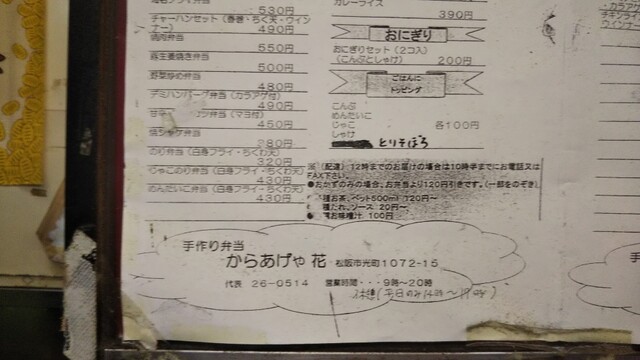 530円
チャーハンセット（春巻・ちく天・ウィン
ナー） 490円
焼肉弁当
550円
豚生姜焼き弁当
500円
野菜炒め弁当
480円
デミハンバーグ弁当（カラアゲ付）
490円
（マヨ付）
450円
焼シャケ弁当
380円
のり弁当（白身フライ・ちくわ天）
320円
じゃこのり弁当（白身フライ・ちくわ天）
430円
めんたいこ弁当（白身フライ・ちくわ天）
430円
カレーライス
390円
おにぎり
おにぎりセット（2コ入）
（こんぶとしゃけ） 200円
ごはんに
トッピング
こんぶ
めんたいこ
じゃこ 各100円
しゃけ
とりそぼろ
（配達）12時までのお届けの場合は10時半までにお電話又は
FAX下さい。
●おかずのみの場合、お弁当より120円引きです。（一部をのぞき）
種お茶、ペット500ml 120円〜
種たれ、ソース 20円〜
お味噌汁 100円
手作り弁当
からあげや 花 松阪市光町1072-15
代表 26-0514 営業時間・・・9時〜20時